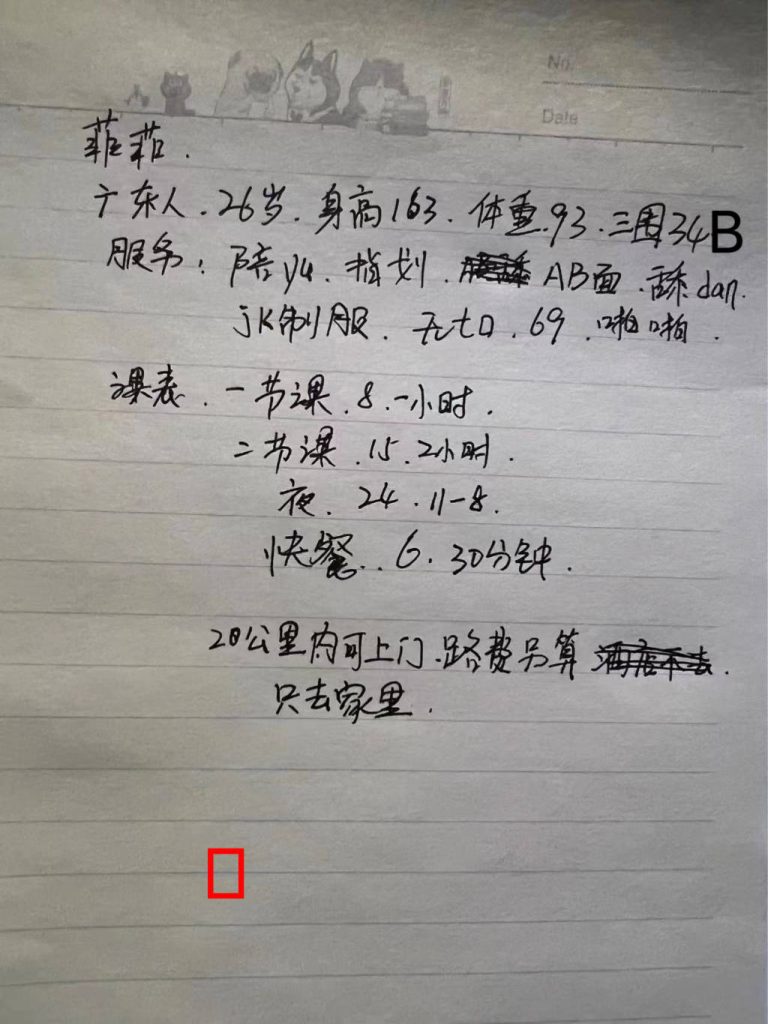 No.
Date
菲菲.
广东人.26岁.身高163.体重.93.三围34B
服务:陪yu.指划.AB面.舔dan.
jk制服.无七口.69.啪啪.
课表.一节课.8.一小时.
二节课.15.2小时.
夜.24.11-8.
快餐..6.30分钟.
20公里内可上门.路费另算酒店不去.
只去家里.